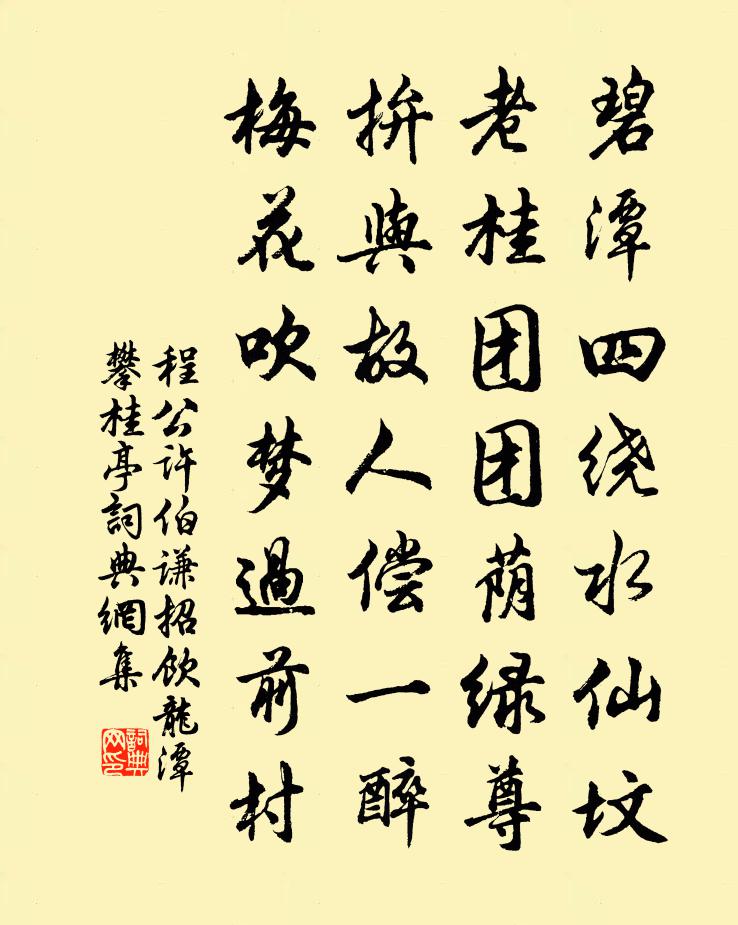 碧潭四绕水仙坟
老桂团团荫绿尊
拚與故人偿一醉
梅花吹梦過前村
程公许伯谦招饮龍潭
攀桂亭詞典網集
詞典网印